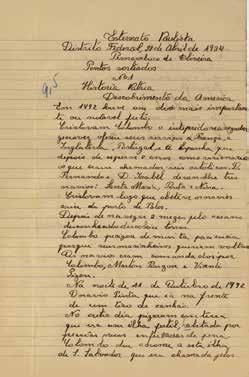 Externato Paulista
Districto Federal 21 de Abril de 1934
de Oliveira
Pontos sorteados
Nº 1
9,5
Historia Patria
Descobrimento da America
Em 1492 teve um dos mais importan
te ou notavel feito.
Cristovam Colombo o intrepido navegador
genovez offereceu seus serviços a França,
Inglaterra, Portugal e a Espanha que
depois de esperar 8 annos
que eram chamados reis catolicos D.
Fernando e D. Izabel deram lhe tres
navios: Santa Maria, Pinta e Nina.
Cristovam logo que obteve os navios
saiu do porto de Palos.
Depois de navegar 2 mezes pelo oceano
desconhecido descobriu terras.
Colombo passou de muita
porque seus marinheiros queriam voltar
Os navios eram comandados por
Colombo, Martim Pinzon e Vicente
Pinzon.
Na noite de 11 de Outubro de 1492
O navio Pinta que ia na frente
deu um tiro de canhão.
No outro dia pizaram em terra
que era um ilha fertil, abitada por
pessoas nuas enfeitadas de pena
Colombo deu o nome a esta ilha
de S. Salvador que era chamada pelos